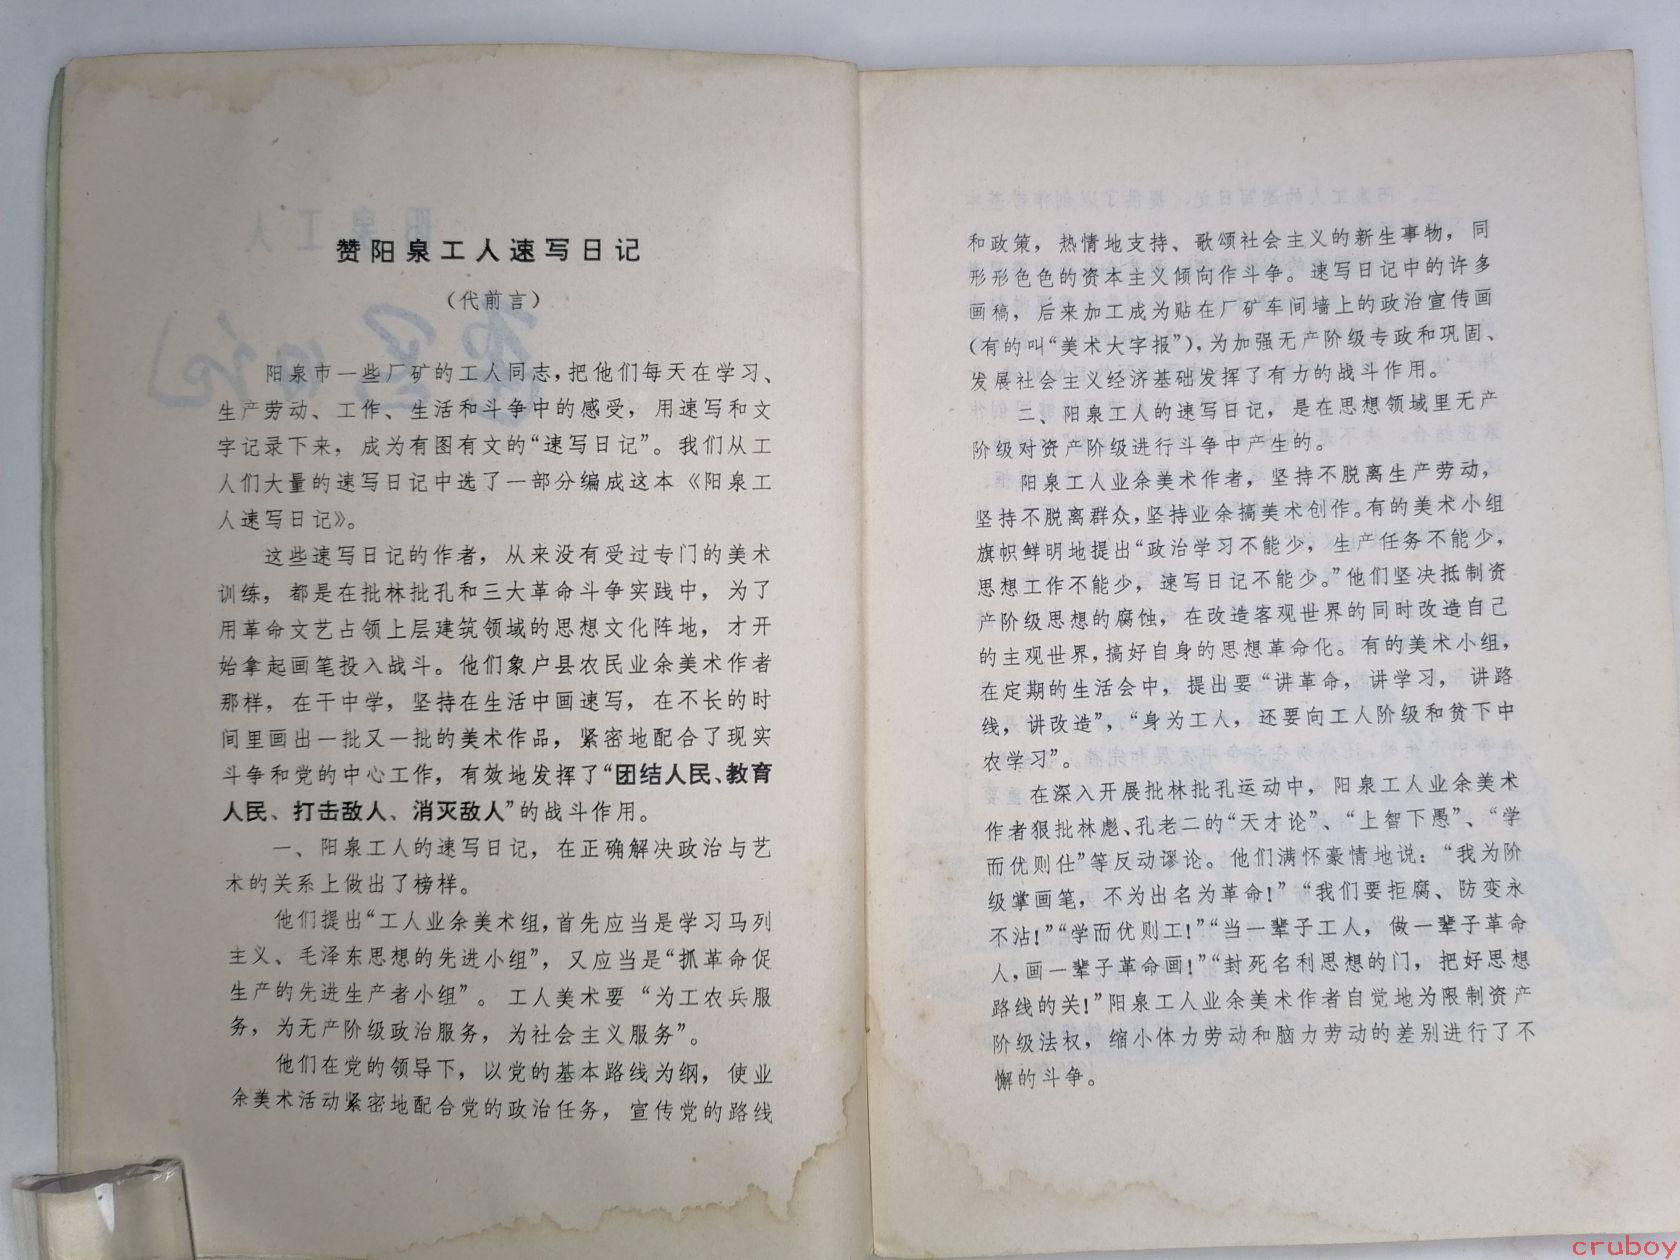 赞阳泉工人速写日记
（代前言）
阳泉市一些厂矿的工人同志，把他们每天在学习、
生产劳动、工作、生活和斗争中的感受，用速写和文
字记录下来，成为有图有文的“速写日记”。我们从工
人们大量的速写日记中选了一部分编成这本《阳泉工
人速写日记》。
这些速写日记的作者，从来没有受过专门的美术
训练，都是在批林批孔和三大革命斗争实践中，为了
用革命文艺占领上层建筑领域的思想文化阵地，才开
始拿起画笔投入战斗。他们象户县农民业余美术作者
那样，在干中学，坚持在生活中画速写，在不长的时
间里画出一批又一批的美术作品，紧密地配合了现实
斗争和党的中心工作，有效地发挥了“团结人民、教育
人民、打击敌人、消灭敌人”的战斗作用。
一、阳泉工人的速写日记，在正确解决政治与艺
术的关系上做出了榜样。
他们提出“工人业余美术组，首先应当是学习马列
主义、毛泽东思想的先进小组”，又应当是“抓革命促
生产的先进生产者小组”。工人美术要“为工农兵服
务，为无产阶级政治服务，为社会主义服务”。
他们在党的领导下，以党的基本路线为纲，使业
余美术活动紧密地配合党的政治任务，宣传党的路线
和政策，热情地支持、歌颂社会主义的新生事物，同
形形色色的资本主义倾向作斗争。速写日记中的许多
画稿，后来加工成为贴在厂矿车间墙上的政治宣传画
（有的叫“美术大字报”），为加强无产阶级专政和巩固、
发展社会主义经济基础发挥了有力的战斗作用。
二、阳泉工人的速写日记，是在思想领域里无产
阶级对资产阶级进行斗争中产生的。
阳泉工人业余美术作者，坚持不脱离生产劳动，
坚持不脱离群众，坚持业余搞美术创作。有的美术小组
旗帜鲜明地提出“政治学习不能少，生产任务不能少，
思想工作不能少，速写日记不能少。”他们坚决抵制资
产阶级思想的腐蚀，在改造客观世界的同时改造自己
的主观世界，搞好自身的思想革命化。有的美术小组，
在定期的生活会中，提出要“讲革命，讲学习，讲路
线，讲改造”，“身为工人，还要向工人阶级和贫下中
农学习”。
在深入开展批林批孔运动中，阳泉工人业余美术
作者狠批林彪、孔老二的“天才论”、“上智下愚”、“学
而优则仕”等反动谬论。他们满怀豪情地说：“我为阶
级掌画笔，不为出名为革命！”“我们要拒腐、防变永
不沾！”“学而优则工！”“当一辈子工人，做一辈子革命
人，画一辈子革命画！”“封死名利思想的门，把好思想
路线的关！”阳泉工人业余美术作者自觉地为限制资产
阶级法权，缩小体力劳动和脑力劳动的差别进行了不
懈的斗争。
cruboy